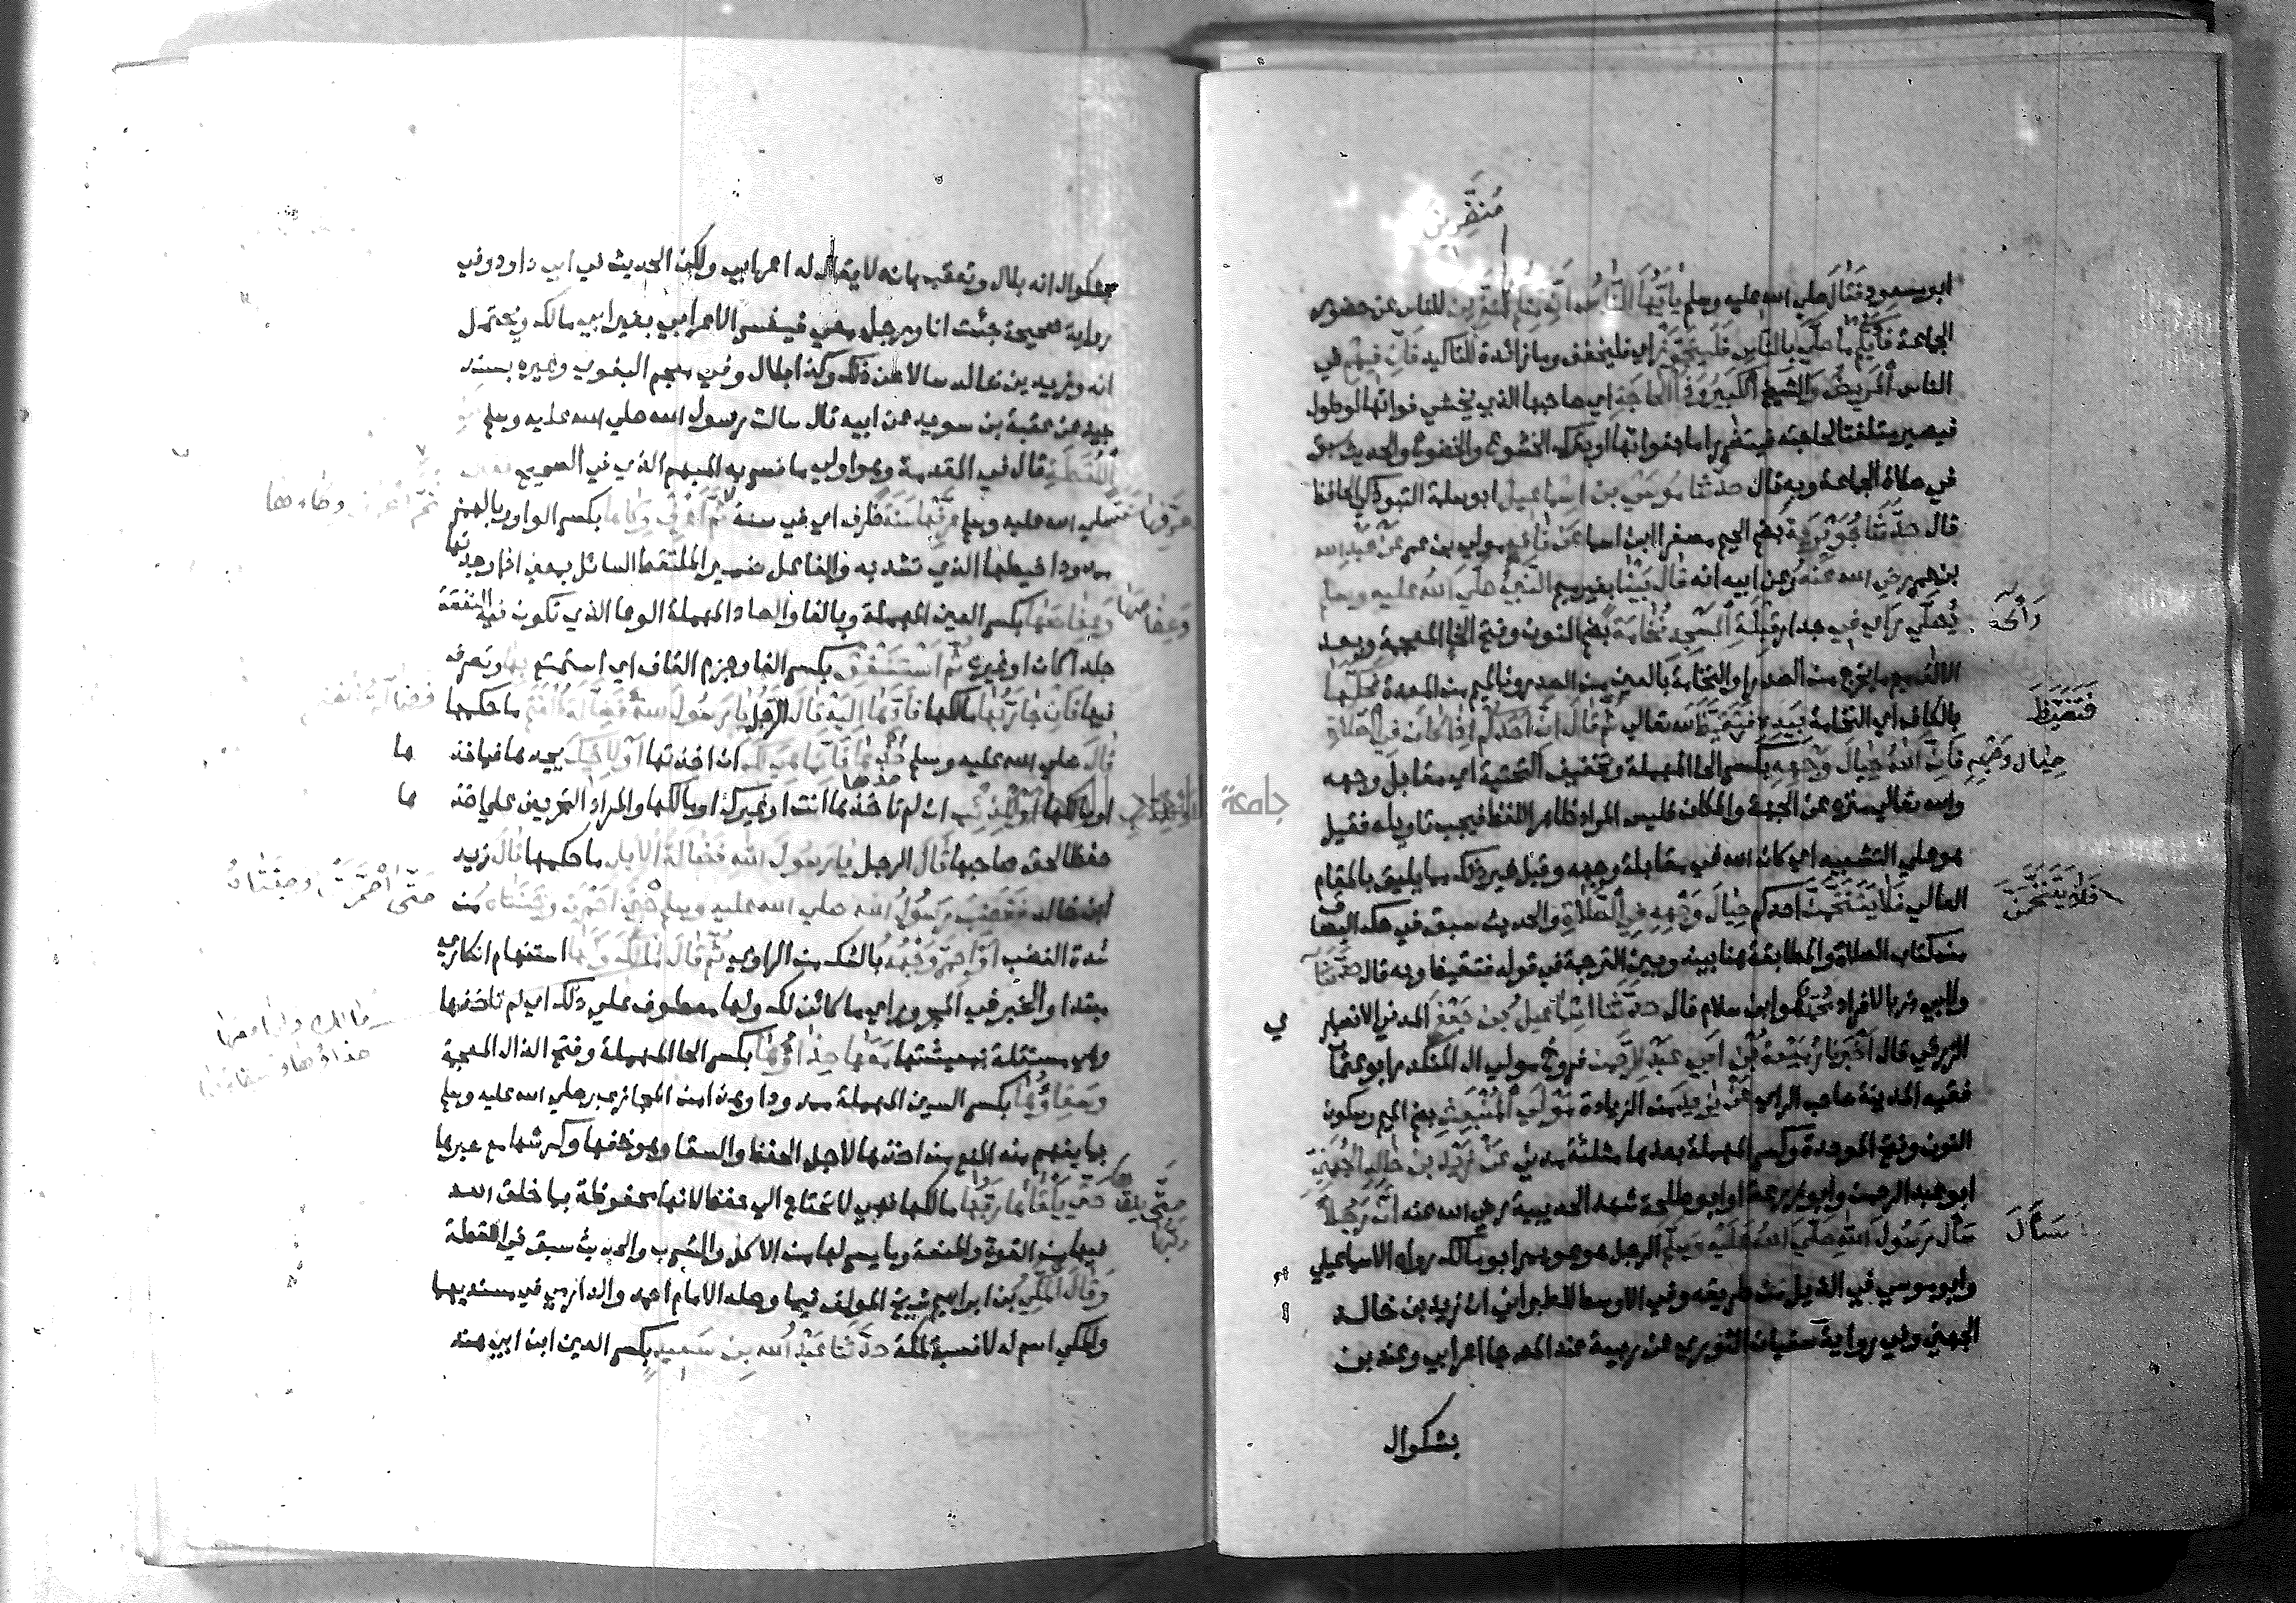 منفرين
ابو مسعود فقال صلي الله عليه وسلم يا ايها الناس ان منكم منفرين للناس عن حضور
الجماعة فايكم ما صلي بالناس فليتجوز اي فليخفف وما زائدة للتاكيد فان فيهم في
الناس المريض والشيخ الكبير وذا الحاجة اي صاحبها الذي يخشي فواتها لو طول
فيصير ملتفتا لحاجته فيتضرر اما بفواتها او بترك الخشوع والخضوع والحديث سبق
في صلاة الجماعة وبه قال حدثنا موسي بن اسماعيل ابو سلمة التبوذكي الحافظ
قال حدثنا جويرية بضم الجيم مصغرا ابن اسما عن نافع مولي بن عمر عن عبد الله
بن عمر رضي الله عنه وعن ابيه انه قال بينا بغير ميم النبي صلي الله عليه وسلم
يصلي راي في جدار قبلة المسجد نخامة بضم النون وفتح الخا المعجمة وبعد
الالف ميم ما يخرج من الصدر او النخاعة بالعين من الصدر وبالميم من المعدة فحكها
بالكاف اي النخامة بيده فتغيظ لله تعالي ثم قال ان احدكم اذا كان في الصلاة
فان الله حيال وجهه بكسر الحا المهملة وتخفيف التحتية اي مقابل وجهه
والله تعالي منزه عن الجهة والمكان فليس المراد ظاهر اللفظ فيجب تاويله فقيل
هو علي التشبيه اي كان الله في مقابلة وجهه وقيل غير ذلك مما يليق بالمقام
العالي فلا يتنخمن احدكم حيال وجهه في الصلاة والحديث سبق في حك البصاق
من كتاب الصلاة والمطابقة هنا بينه وبين الترجمة في قوله فتغيظ وبه قال حدثنا
ولابي ذر بالافراد محمد هو ابن سلام قال حدثنا اسماعيل بن جعفر المدني الانصاري
الزرقي قال اخبرنا ربيعة بن ابي عبد الرحمن فروخ مولي ال المنكدر ابو عثمان
فقيه المدينة صاحب الراي عن يزيد من الزيادة مولي المنبعث بضم الميم وسكون
النون وفتح الموحدة وكسر المهملة بعدها مثلثة مدني عن زيد بن خالد الجهني
ابو عبد الرحمن وابو زرعة او ابو طلحة شهد الحديبية رضي الله عنه ان رجلا
سال رسول الله صلي الله عليه وسلم الرجل هو عمير ابو مالك رواه الاسماعيلي
وابو موسي في الذيل من طريقه وفي الاوسط للطبراني ان زيد بن خالد
الجهني وفي رواية سفيان الثوري عن ربيعة عند المص جا اعرابي وعند بن
بشكوال
وآخر
فتغيظ
حيال وجهه
فلا يتنخمن
سأل
بشكوال انه بلال وتعقب بانه لا يقال له اعرابي ولكن الحديث في ابي داود وفي
رواية صحيحة جئت انا ورجل معي فيفسر الاعرابي بغير ابي مالك ويحتمل
انه وزيد بن خالد سالا عن ذلك وكذا بلال وفي معجم البغوي وغيره بسند
جيد عن عقبة بن سويد عن ابيه قال سالت رسول الله صلي الله عليه وسلم
عن اللقطة قال في المقدمة وهو اولي ما فسر به المبهم الذي في الصحيح فقال
صلي الله عليه وسلم عرفها سنة ظرف اي في سنة ثم اعرف وكاها بكسر الواو وبالهمز
ممدودا خيطها الذي تشد به والفاعل ضمير الملتقط السائل يعني اذا وجدتها
وعفاصها بكسر العين المهملة وبالفا والصاد المهملة الوعا الذي تكون فيه النفقة
جلدا كان او غيره ثم استنفق بكسر الفا وجزم القاف اي استمتع بها وتصرف
فيها فان جا ربها مالكها فادها اليه قال الرجل يا رسول الله فضالة الغنم ما حكمها
قال صلي الله عليه وسلم خذها فانما هي لك ان اخذتها او لاخيك يجدها فياخذها
او مالكها او للذئب ان لم تاخذها انت او غيرك او مالكها والمراد التحريض علي اخذها
حفظا لحق صاحبها قال الرجل يا رسول الله فضالة الابل ما حكمها قال زيد
ابن خالد فغضب رسول الله صلي الله عليه وسلم حتي احمرت وجنتاه من
شدة الغضب او احمر وجهه بالشك من الراوي ثم قال مالك ولها استفهام انكاري
مبتدا والخبر في المجرور اي ما كائن لك ولها معطوف علي ذلك اي لم تاخذها
وهي مستقلة بمعيشتها معها حذاؤها بكسر الحا المهملة وفتح الذال المعجمة
وسقاؤها بكسر السين المهملة ممدودا وهذا من المجاز عبر صلي الله عليه وسلم
بما يفهم منه المنع من اخذها لاجل الحفظ والسقا وهو خفها وكرشها مع صبرها
حتي يلقاها ربها مالكها فهي لا تحتاج الي حفظ لانها محفوظة بما خلق الله
فيها من القوة والمنعة وما يسر لها من الاكل والشرب والحديث سبق في اللقطة
وقال المكي بن ابراهيم شيخ المولف فيما وصله الامام احمد والدارمي في مسنديهما
والمكي اسم له لا نسبة لمكة حدثنا عبد الله بن سعيد بكسر العين ابن ابي هند
عرفها
وعفاصها
حتى احمرت وجنتاه
حتى يلقاها ربها
جامعة